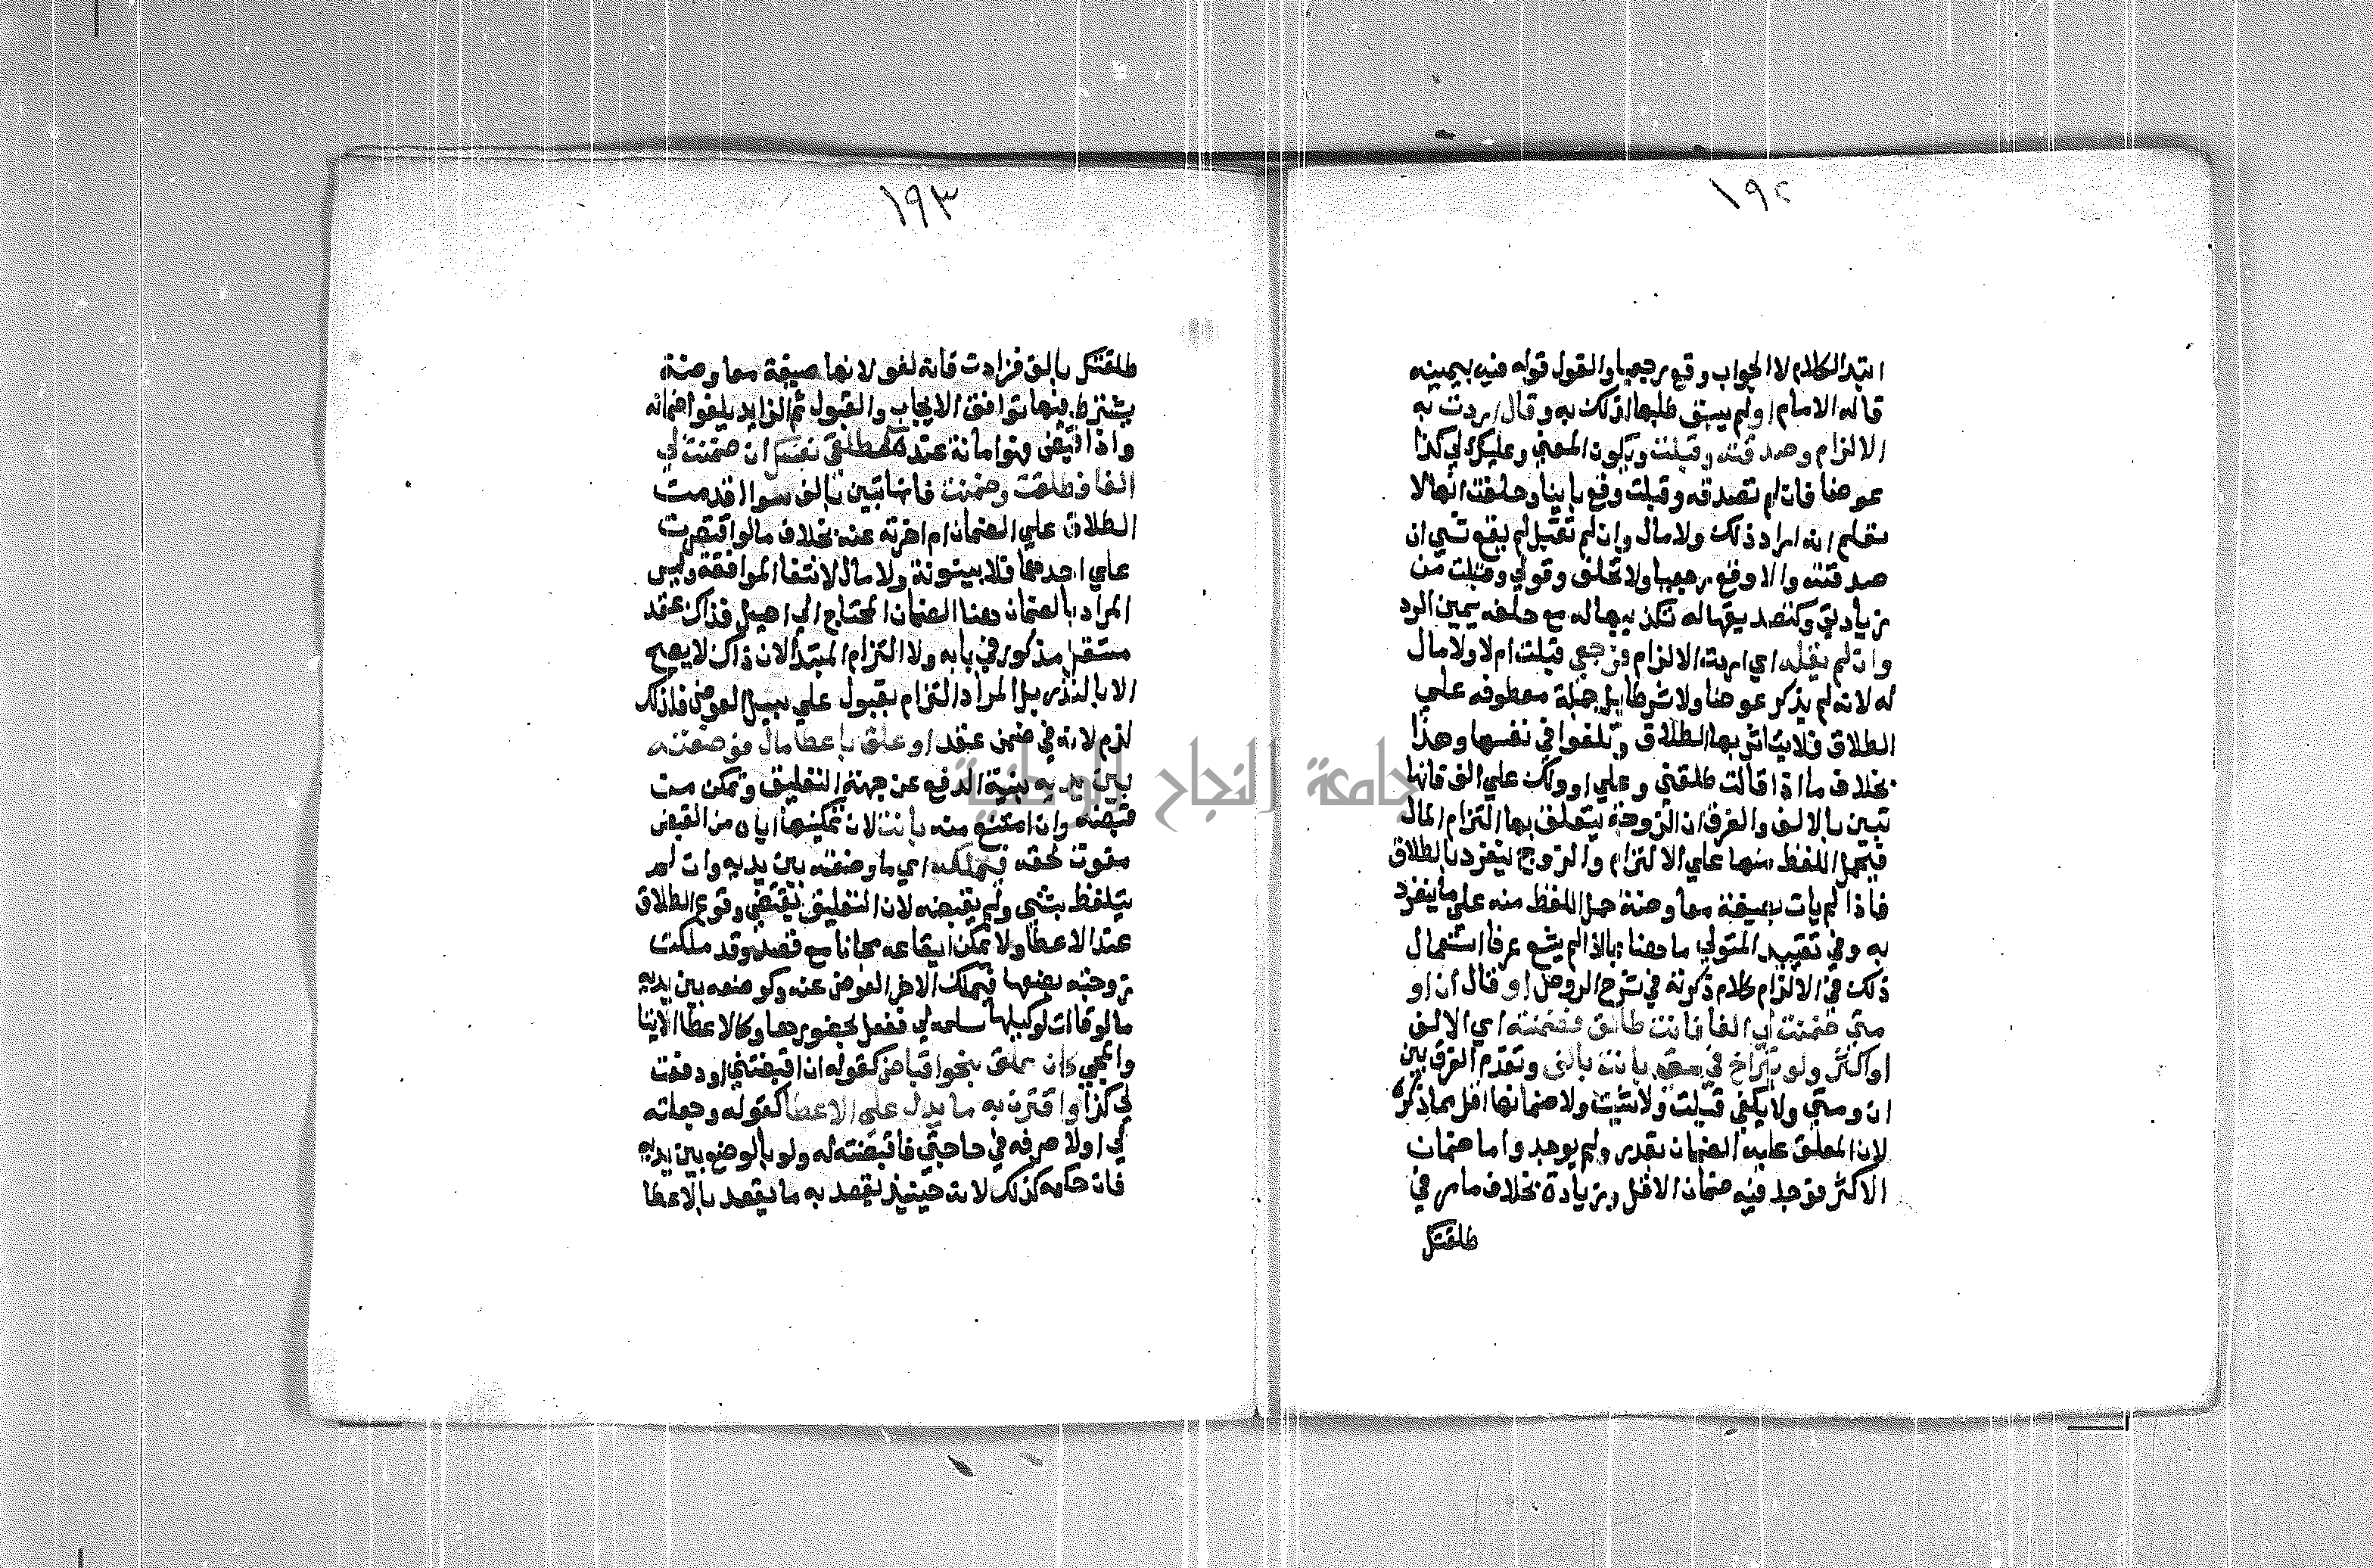 ١٩٢
ابتدا الكلام لا الجواب وقع رجعيا والقول قوله فيه بيمينه
قاله الامام او لم يسبق طلبها لذلك به وقال اردت به
الالزام وصدقته وقبلت ويكون المعني وعليك لي كذا
عوضا فان لم تصدقه وقبلت وقع باينا وحلفت انها لا
تعلم انه اراد ذلك ولا مال وان لم تقبل لم يقع شي ان
صدقته والا وقع رجعيا ولا تحلف وقولي وقبلت من
زيادتي وكتصديقها له تكذيبها له مع حلفه يمين الرد
وان لم يقله اي اردت الالزام فرجعي قبلت ام لا ولا مال
له لانه لم يذكر عوضا ولا شرطا بل جملة معطوفه علي
الطلاق فلا يتاثر بها الطلاق وتلغوا في نفسها وهذا
بخلاف ما اذا قالت طلقني وعلي او ولك علي الف فانها
تبين بالالف والفرق ان الزوجة يتعلق بها التزام المال
فيحمل اللفظ منها علي الالتزام والزوج ينفرد بالطلاق
فاذا لم يات بصيغة معاوضة حمل اللفظ منه علي ما ينفرد
به وفي تقييد المتولي ما هنا بما اذا لم يشع عرفا استعمال
ذلك في الالزام كلام ذكرته في شرح الروض او قال ان او
متي ضمنت لي الفا فانت طالق فضمنته اي الالف
او اكثر ولو بتراخ في متي بانت بالف وتقدم الفرق بين
ان ومتي ولا يكفي قبلت ولا شئت ولا ضمانها اقل بما ذكره
لان المعلق عليه الضمان بقدر ولم يوجد واما ضمان
الاكثر فوجد فيه ضمان الاقل وزيادة بخلاف ما مر في
طلقتك
١٩٣
طلقتك بالف فزادت فانه لغو لانها صيغة معاوضة
يشترط فيها توافق الايجاب والقبول ثم الزايد يلغوا ضمانه
واذا قبض فهو امانة عنده كطلقي نفسك ان ضمنت لي
الفا فطلقت وضمنت فانها تبين بالف سوا اقدمت
الطلاق علي الضمان ام اخرته عنه بخلاف ما لو اقتصرت
علي احدهما فلا بينونة ولا مال لانتفا الموافقة وليس
المراد بالضمان هنا الضمان المحتاج الي اصيل فذاك عقد
مستقل مذكور في بابه ولا التزام المبتدا لان ذاك لا يصح
الا بالنذر بل المراد التزام بقبول علي سبيل العوض فلذلك
لزم لانه في ضمن عقد او علق باعطا مال فوضعته
بين يديه بنية الدفع عن جهة التعليق وتمكن من
قبضه وان امتنع منه بانت لان تمكينها اياه من القبض
مفوت لحقه فيملكه اي ما وضعته بين يديه وان لم
يتلفظ بشي ولم يقبضه لان التعليق يقتضي وقوع الطلاق
عند الاعطا ولا يمكن ايقاعه مجانا مع قصده وقد ملكت
زوجته بضعها فيملك الاخر العوض عنه وكوضعه بين يديه
ما لو قالت لوكيلها سلمه اليه ففعل بحضورها وكالاعطا الايتا
والمجي كان علق بنحو اقباض كقوله ان اقبضتني او دفعت
لي كذا واقترن به ما يدل علي الاعطا كقوله وجعلته
لي او لاصرفه في حاجتي فاقبضته له ولو بالوضع بين يديه
فان حكمه كذلك لانه حينئذ يقصد به ما يقصد بالاعطا
جامعة النجاح الوطنية